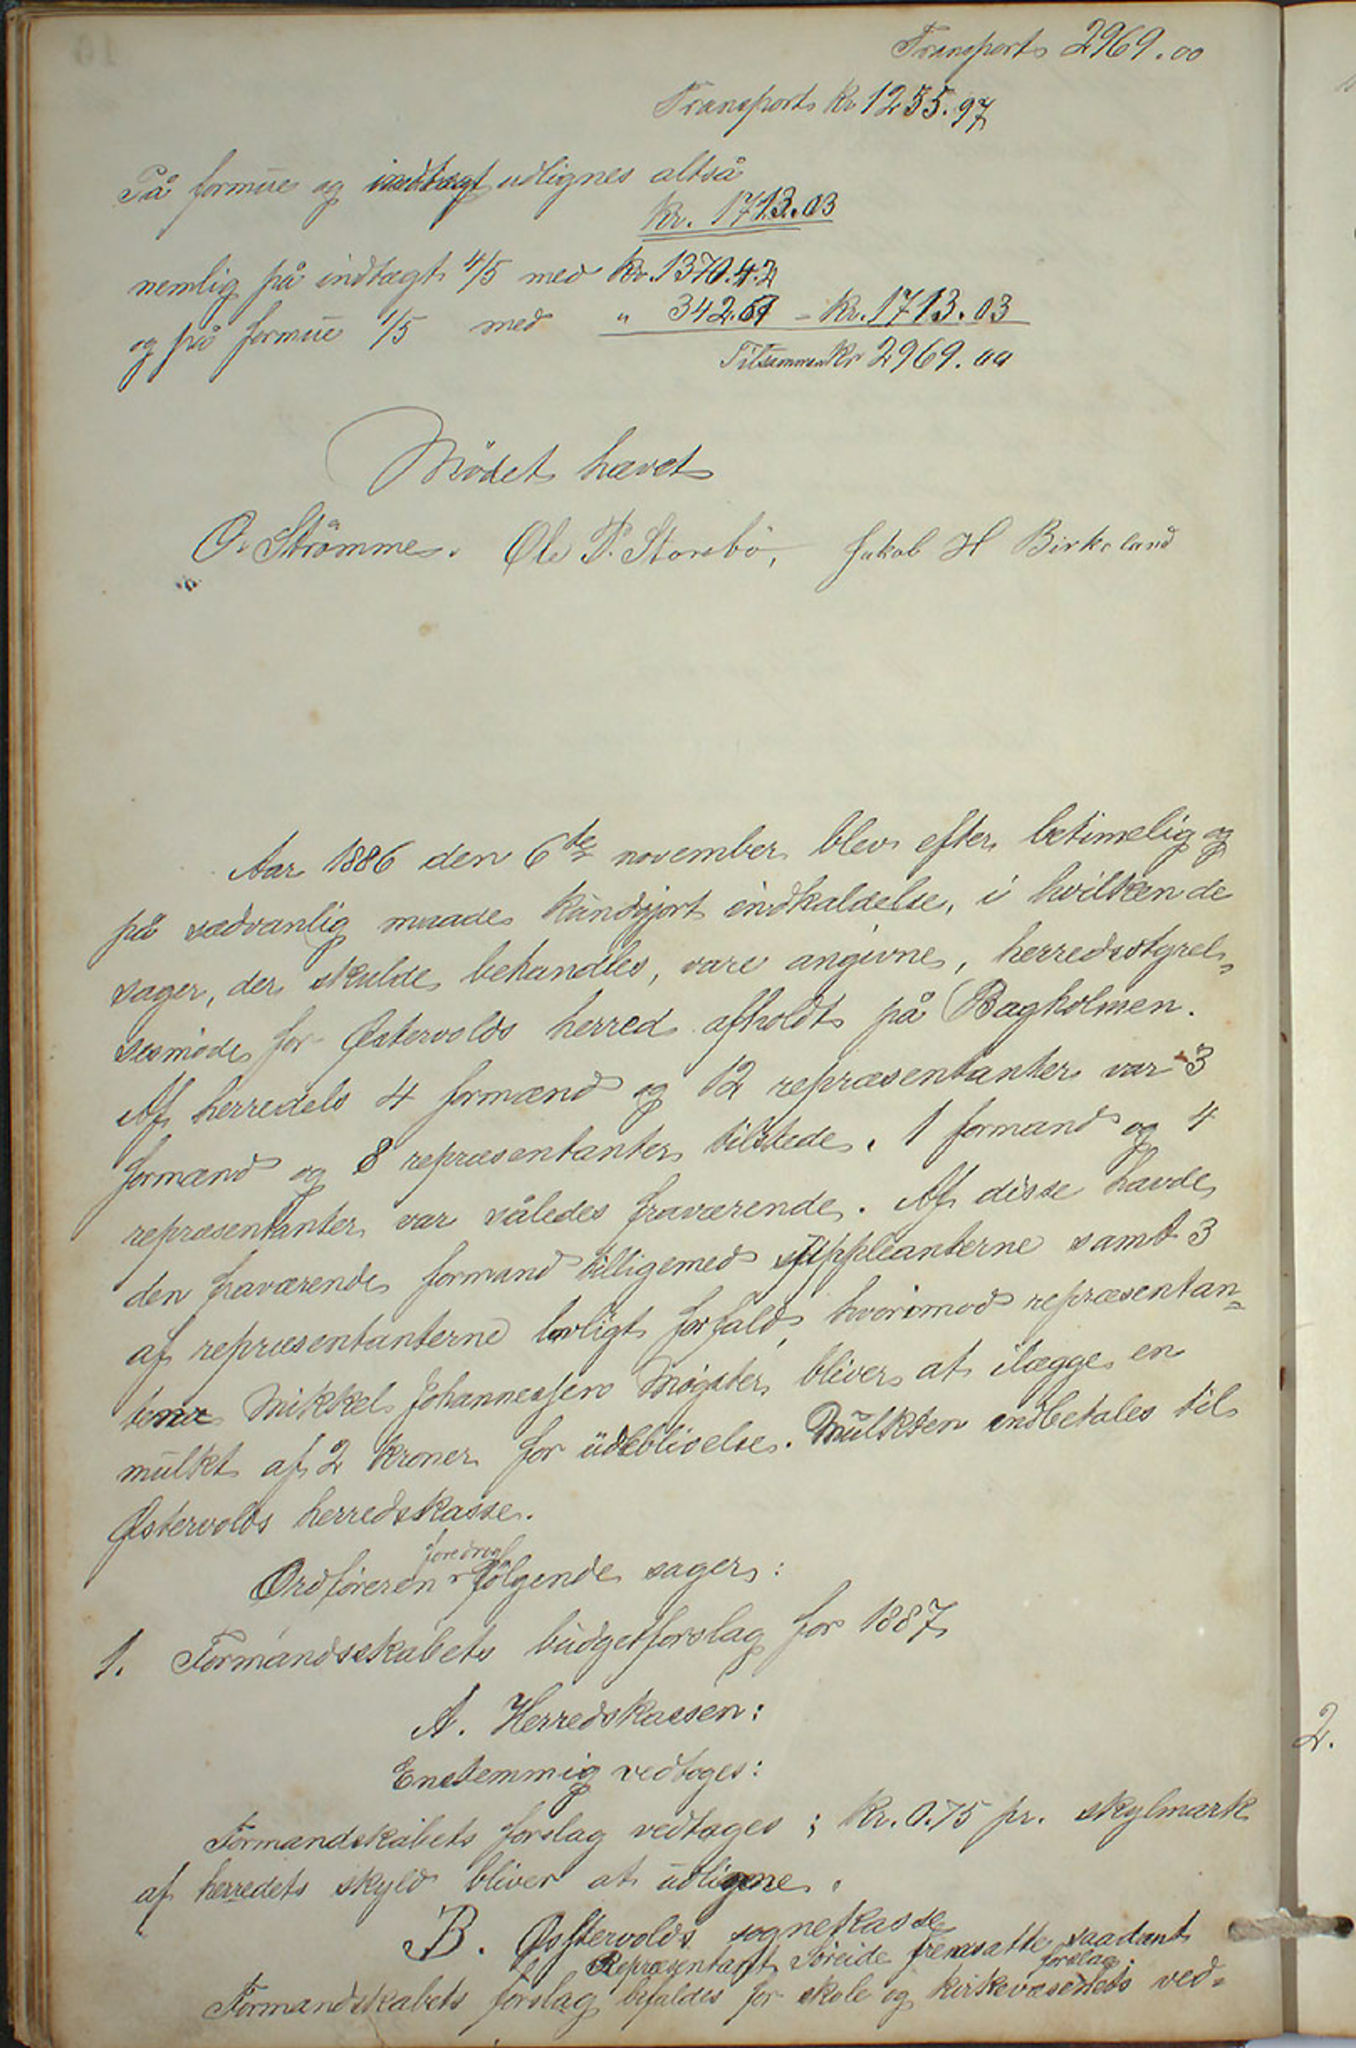 Transport 2969.00
Transport kr 1255.97
På formue og indtægt udlignes altså
kr. 1713.03
nemlig på indtægt 4/5 med kr. 1370.42
og på formue 1/5 med " 342.61 - kr. 1713.03
Tilsammen kr 2969.00
Mödet hævet
O. Strömme. Ole P. Storebö, Jakob H Birkeland
Aar 1886 den 6te november blev efter betimelig og
på sædvanlig maade kundgjort indkaldelse, i hvilken de
sager, der skulde behandles, vare angivne, herredsstyrel-
sesmöde for Østervolds herred afholdt på Bagholmen.
Af herredets 4 formænd og 12 repræsentanter var 3
formænd og 8 repræsentanter tilstede. 1 formand og 4
repræsentanter var således fraværende. Af disse havde
den fraværende formand tilligemed suppleanterne samt 3
af repræsentanterne lovligt forfald, hvorimod repræsentan-
tene Mikkel Johannessen Møgster bliver at ilægge en
mulkt af 2 kroner for udeblivelse. Mulkten indbetales til
Østervolds herredskasse.
foredrog
Ordføreren følgende sager:
1. Formandsskabets budgetforslag for 1887
A. Herredskassen:
Enstemmig vedtoges:
Formandskabets forslag vedtages; kr. 0.75 pr. skylmark
af herredets skyld bliver at udligne.
B. Østervolds sognekasse
Repræsentant Söreide fremsatte saadant
forslag:
Formandskabets forslag bifaldes for skole og kirkevæsenets ved-
2.